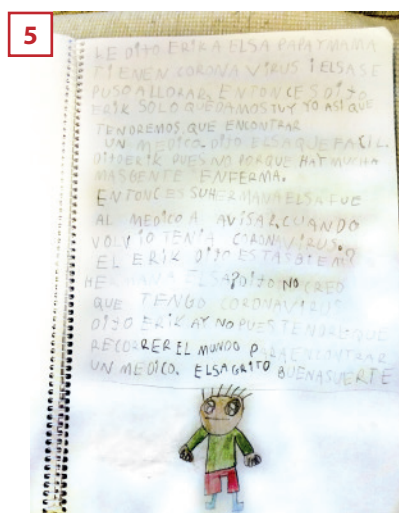 5
LE DIJO ERIK A ELSA PAPA Y MAMA
TIENEN CORONA VIRUS I ELSA SE
PUSO ALLORAR. ENTONCES DIJO
ERIK SOLO QUEDAMOS TU Y YO ASI QUE
TENDREMOS QUE ENCONTRAR
UN MEDICO. DIJO ELSA QUE FACIL.
DIJO ERIK PUES NO PORQUE HAY MUCHA
MAS GENTE ENFERMA.
ENTONCES SU HERMANA ELSA FUE
AL MEDICO A AVISAR, CUANDO
VOLVIO TENIA CORONAVIRUS.
EL ERIK DIJO ESTAS BIEN?
HERMANA ELSA DIJO NO CREO
QUE TENGO CORONAVIRUS
DIJO ERIK AY NO PUES TENDRE QUE
RECORRER EL MUNDO PARA ENCONTRAR
UN MEDICO. ELSA GRITO BUENA SUERTE